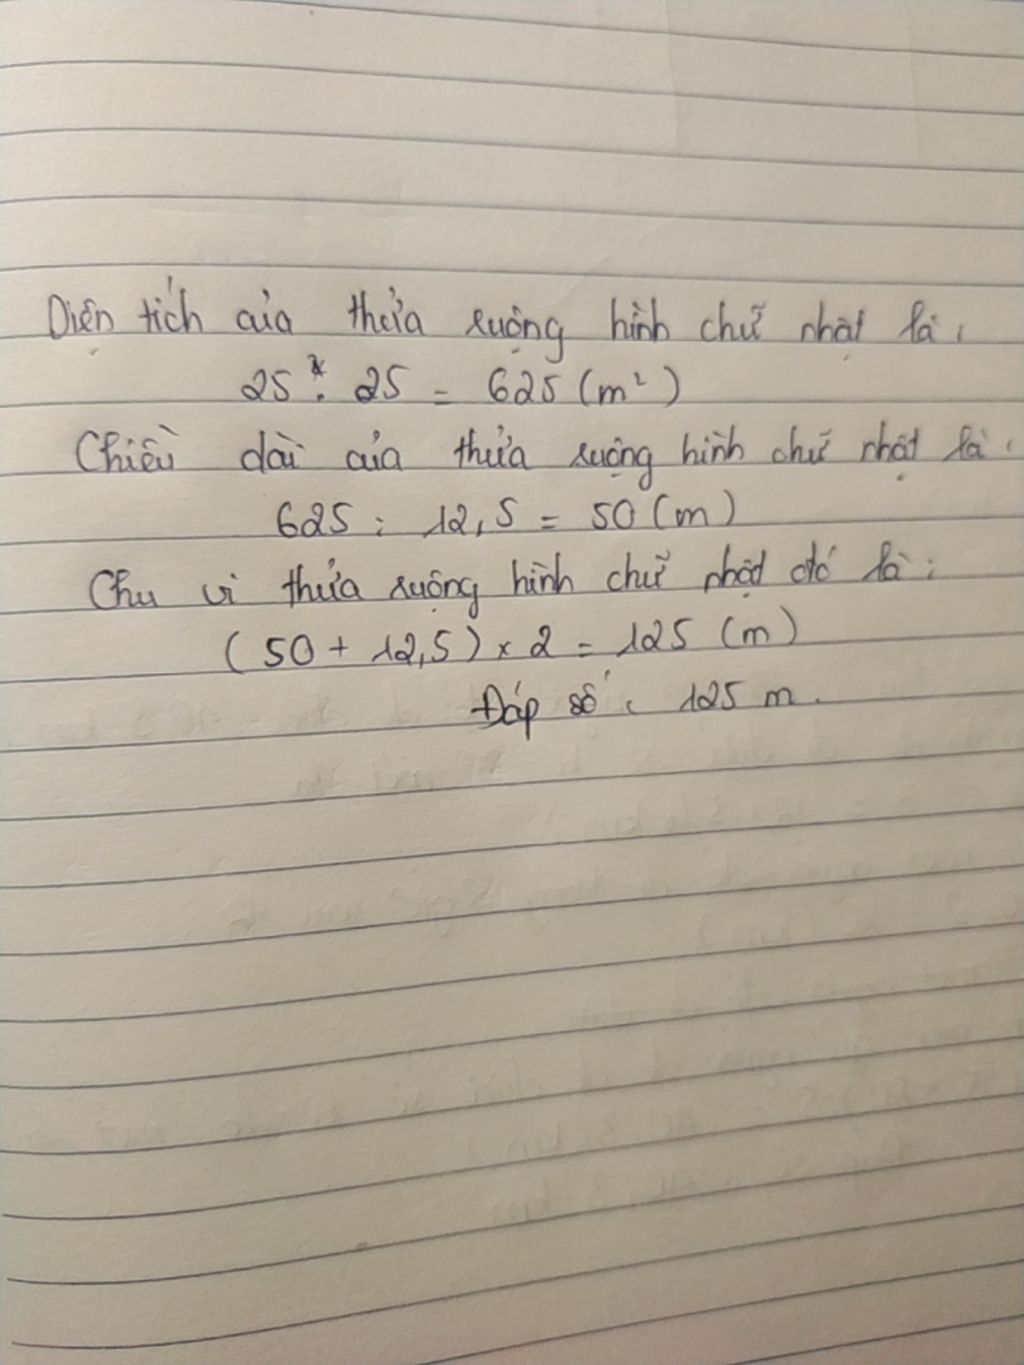 Diện tích của thửa ruộng hình chữ nhật là:
25 x 25 = 625 (m²)
Chiều dài của thửa ruộng hình chữ nhật là:
625 : 12,5 = 50 (m)
Chu vi thửa ruộng hình chữ nhật đó là:
(50 + 12,5) x 2 = 125 (m)
Đáp số: 125 m.